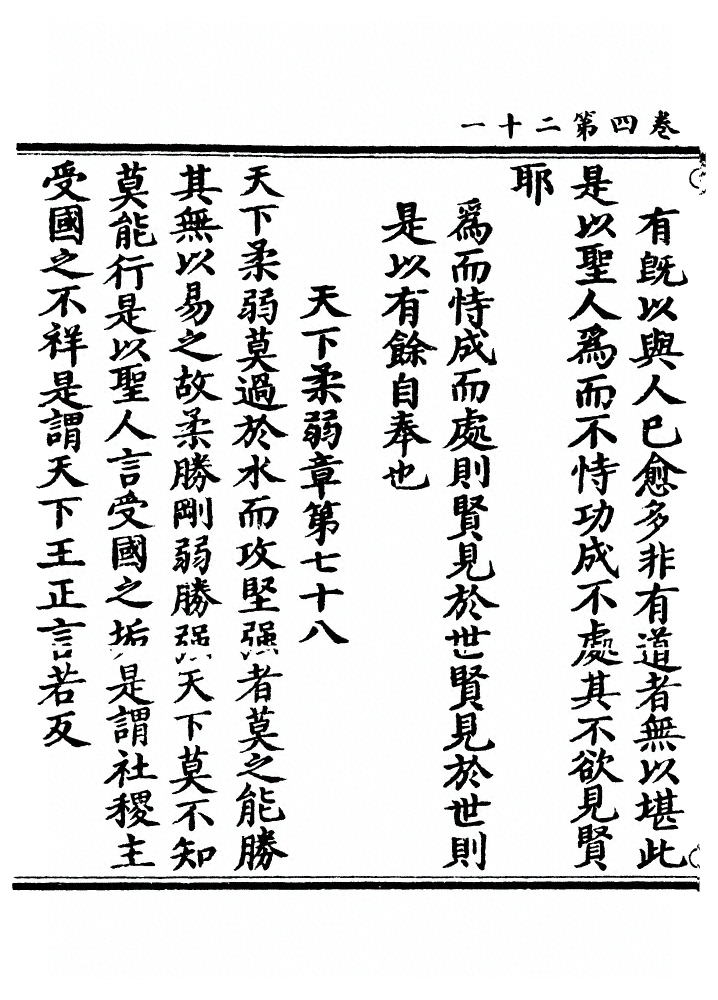 卷四第二十一
有旣以與人已愈多非有道者無以堪此
是以聖人爲而不恃功成不處其不欲見賢
耶
爲而恃成而處則賢見於世賢見於世則
是以有餘自奉也
天下柔弱章第七十八
天下柔弱莫過於水而攻堅强者莫之能勝
其無以易之故柔勝剛弱勝强天下莫不知
莫能行是以聖人言受國之垢是謂社稷主
受國之不祥是謂天下王正言若反